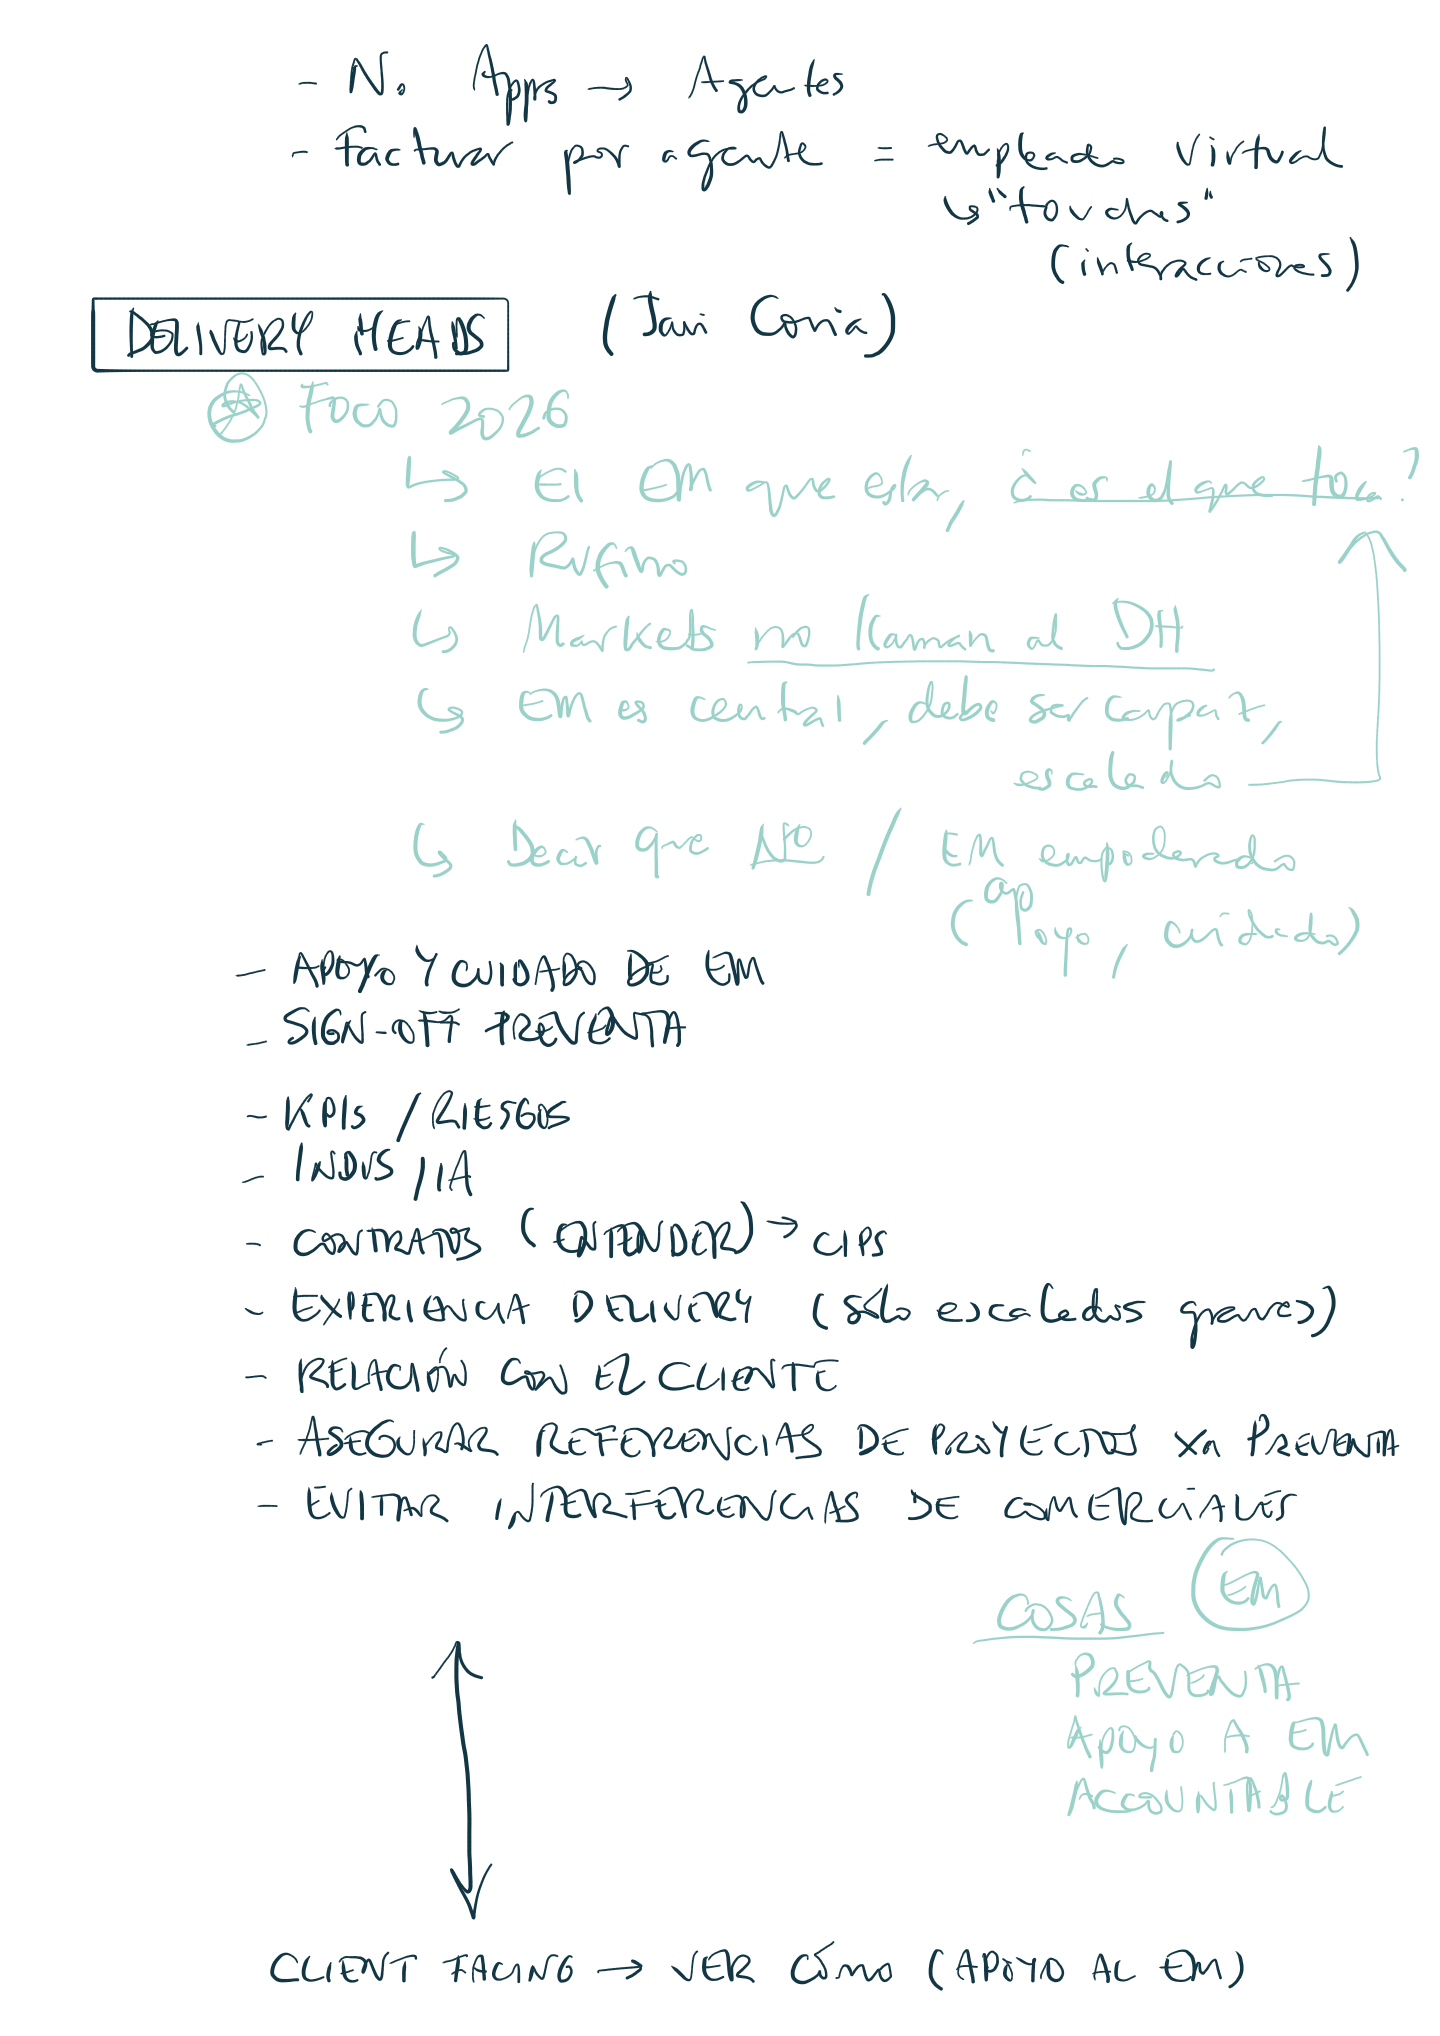 - N. Apps → Agentes
- Facturar por agente = empleado virtual
↳ "touches"
(interacciones)
DELIVERY HEADS (Javi Coria)
Foco 2026
↳ El EM que está, ¿es el que toca?
↳ Rufino
↳ Markets no llaman al DH
↳ EM es central, debe ser capaz,
escalado
↳ Decir que NO / EM empoderado
(apoyo, cuidado)
- APOYO Y CUIDADO DE EM
- SIGN-OFF PREVENTA
- KPIs / RIESGOS
- INDUS / IA
- CONTRATOS (ENTENDER) → CIPS
- EXPERIENCIA DELIVERY (sólo escalados graves)
- RELACIÓN CON EL CLIENTE
- ASEGURAR REFERENCIAS DE PROYECTOS xa PREVENTA
- EVITAR INTERFERENCIAS DE COMERCIALES
COSAS EM
PREVENTA
APOYO A EM
ACCOUNTABLE
CLIENT FACING → VER CÓMO (APOYO AL EM)